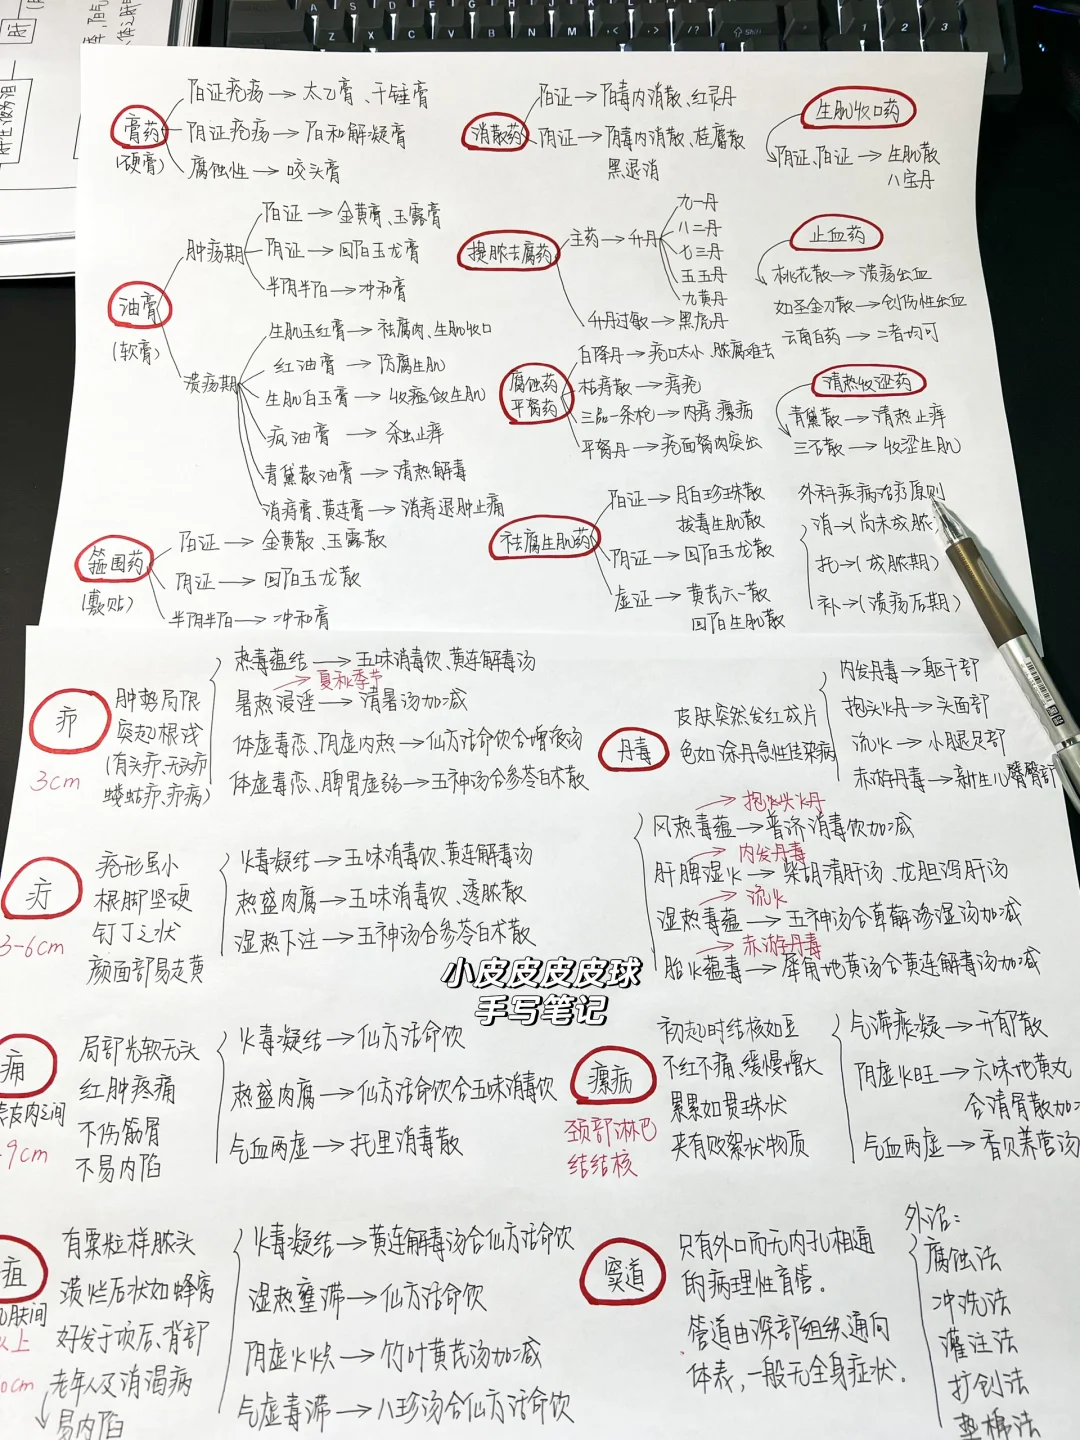 膏药
(硬膏)
阳证疮疡→太乙膏、千锤膏
阴证疮疡→阳和解凝膏
腐蚀性→咬头膏
消散药
阳证→阳毒内消散、红灵丹
阴证→阴毒内消散、桂麝散
黑退消
生肌收口药
阴证、阳证→生肌散
八宝丹
油膏
(软膏)
肿疡期
阳证→金黄膏、玉露膏
阴证→回阳玉龙膏
半阴半阳→冲和膏
溃疡期
生肌玉红膏→祛腐肉、生肌收口
红油膏→防腐生肌
生肌白玉膏→收敛生肌
疯油膏→杀虫止痒
青黛散油膏→清热解毒
消痔膏、黄连膏→消痔退肿止痛
提脓去腐药
主药→升丹
九一丹
八二丹
七三丹
五五丹
九黄丹
升丹过敏→黑虎丹
止血药
桃花散→溃疡出血
如圣金刀散→创伤性出血
云南白药→二者均可
腐蚀药
平胬药
白降丹→疮口太小、脓腐难去
枯痔散→痔疮
三品一条枪→内痔、瘰疬
平胬丹→疮面胬肉突出
清热收涩药
青黛散→清热止痒
三石散→收涩生肌
箍围药
(敷贴)
阳证→金黄散、玉露散
阴证→回阳玉龙散
半阴半阳→冲和膏
祛腐生肌药
阳证→月白珍珠散
拔毒生肌散
阴证→回阳玉龙散
虚证→黄芪六一散
回阳生肌散
外科疾病治疗原则
消→(尚未成脓)
托→(成脓期)
补→(溃疡后期)
疖
3cm
肿势局限
突起根浅
(有头疖、无头疖
蝼蛄疖、疖病)
热毒蕴结→五味消毒饮、黄连解毒汤
夏秋季节
暑热浸淫→清暑汤加减
体虚毒恋、阴虚内热→仙方活命饮合增液汤
体虚毒恋、脾胃虚弱→五神汤合参苓白术散
丹毒
皮肤突然发红成片
色如涂丹急性传染病
内发丹毒→躯干部
抱头火丹→头面部
流火→小腿足部
赤游丹毒→新生儿臀
抱头火丹
风热毒蕴→普济消毒饮加减
内发丹毒
肝脾湿火→柴胡清肝汤、龙胆泻肝汤
流火
湿热毒蕴→五神汤合萆薢渗湿汤加减
赤游丹毒
胎火蕴毒→犀角地黄汤合黄连解毒汤加减
疔
3-6cm
疮形虽小
根脚坚硬
钉丁之状
颜面部易走黄
火毒凝结→五味消毒饮、黄连解毒汤
热盛肉腐→五味消毒饮、透脓散
湿热下注→五神汤合参苓白术散
小皮皮皮皮球
手写笔记
痈
皮肉之间
9cm
局部光软无头
红肿疼痛
不伤筋骨
不易内陷
火毒凝结→仙方活命饮
热盛肉腐→仙方活命饮合五味消毒饮
气血两虚→托里消毒散
瘰疬
颈部淋巴
结结核
初起时结核如豆
不红不痛、缓慢增大
累累如贯珠状
夹有败絮状物质
气滞痰凝→开郁散
阴虚火旺→六味地黄丸
合清骨散加
气血两虚→香贝养营汤
疽
肤间
以上
0cm
有粟粒样脓头
溃烂后状如蜂窝
好发于项后、背部
老年人及消渴病
易内陷
火毒凝结→黄连解毒汤合仙方活命饮
湿热壅滞→仙方活命饮
阴虚火炽→竹叶黄芪汤加减
气虚毒滞→八珍汤合仙方活命饮
窦道
只有外口而无内孔相通
的病理性盲管。
管道由深部组织通向
体表,一般无全身症状。
外治:
腐蚀法
冲洗法
灌注法
扩创法
垫棉法